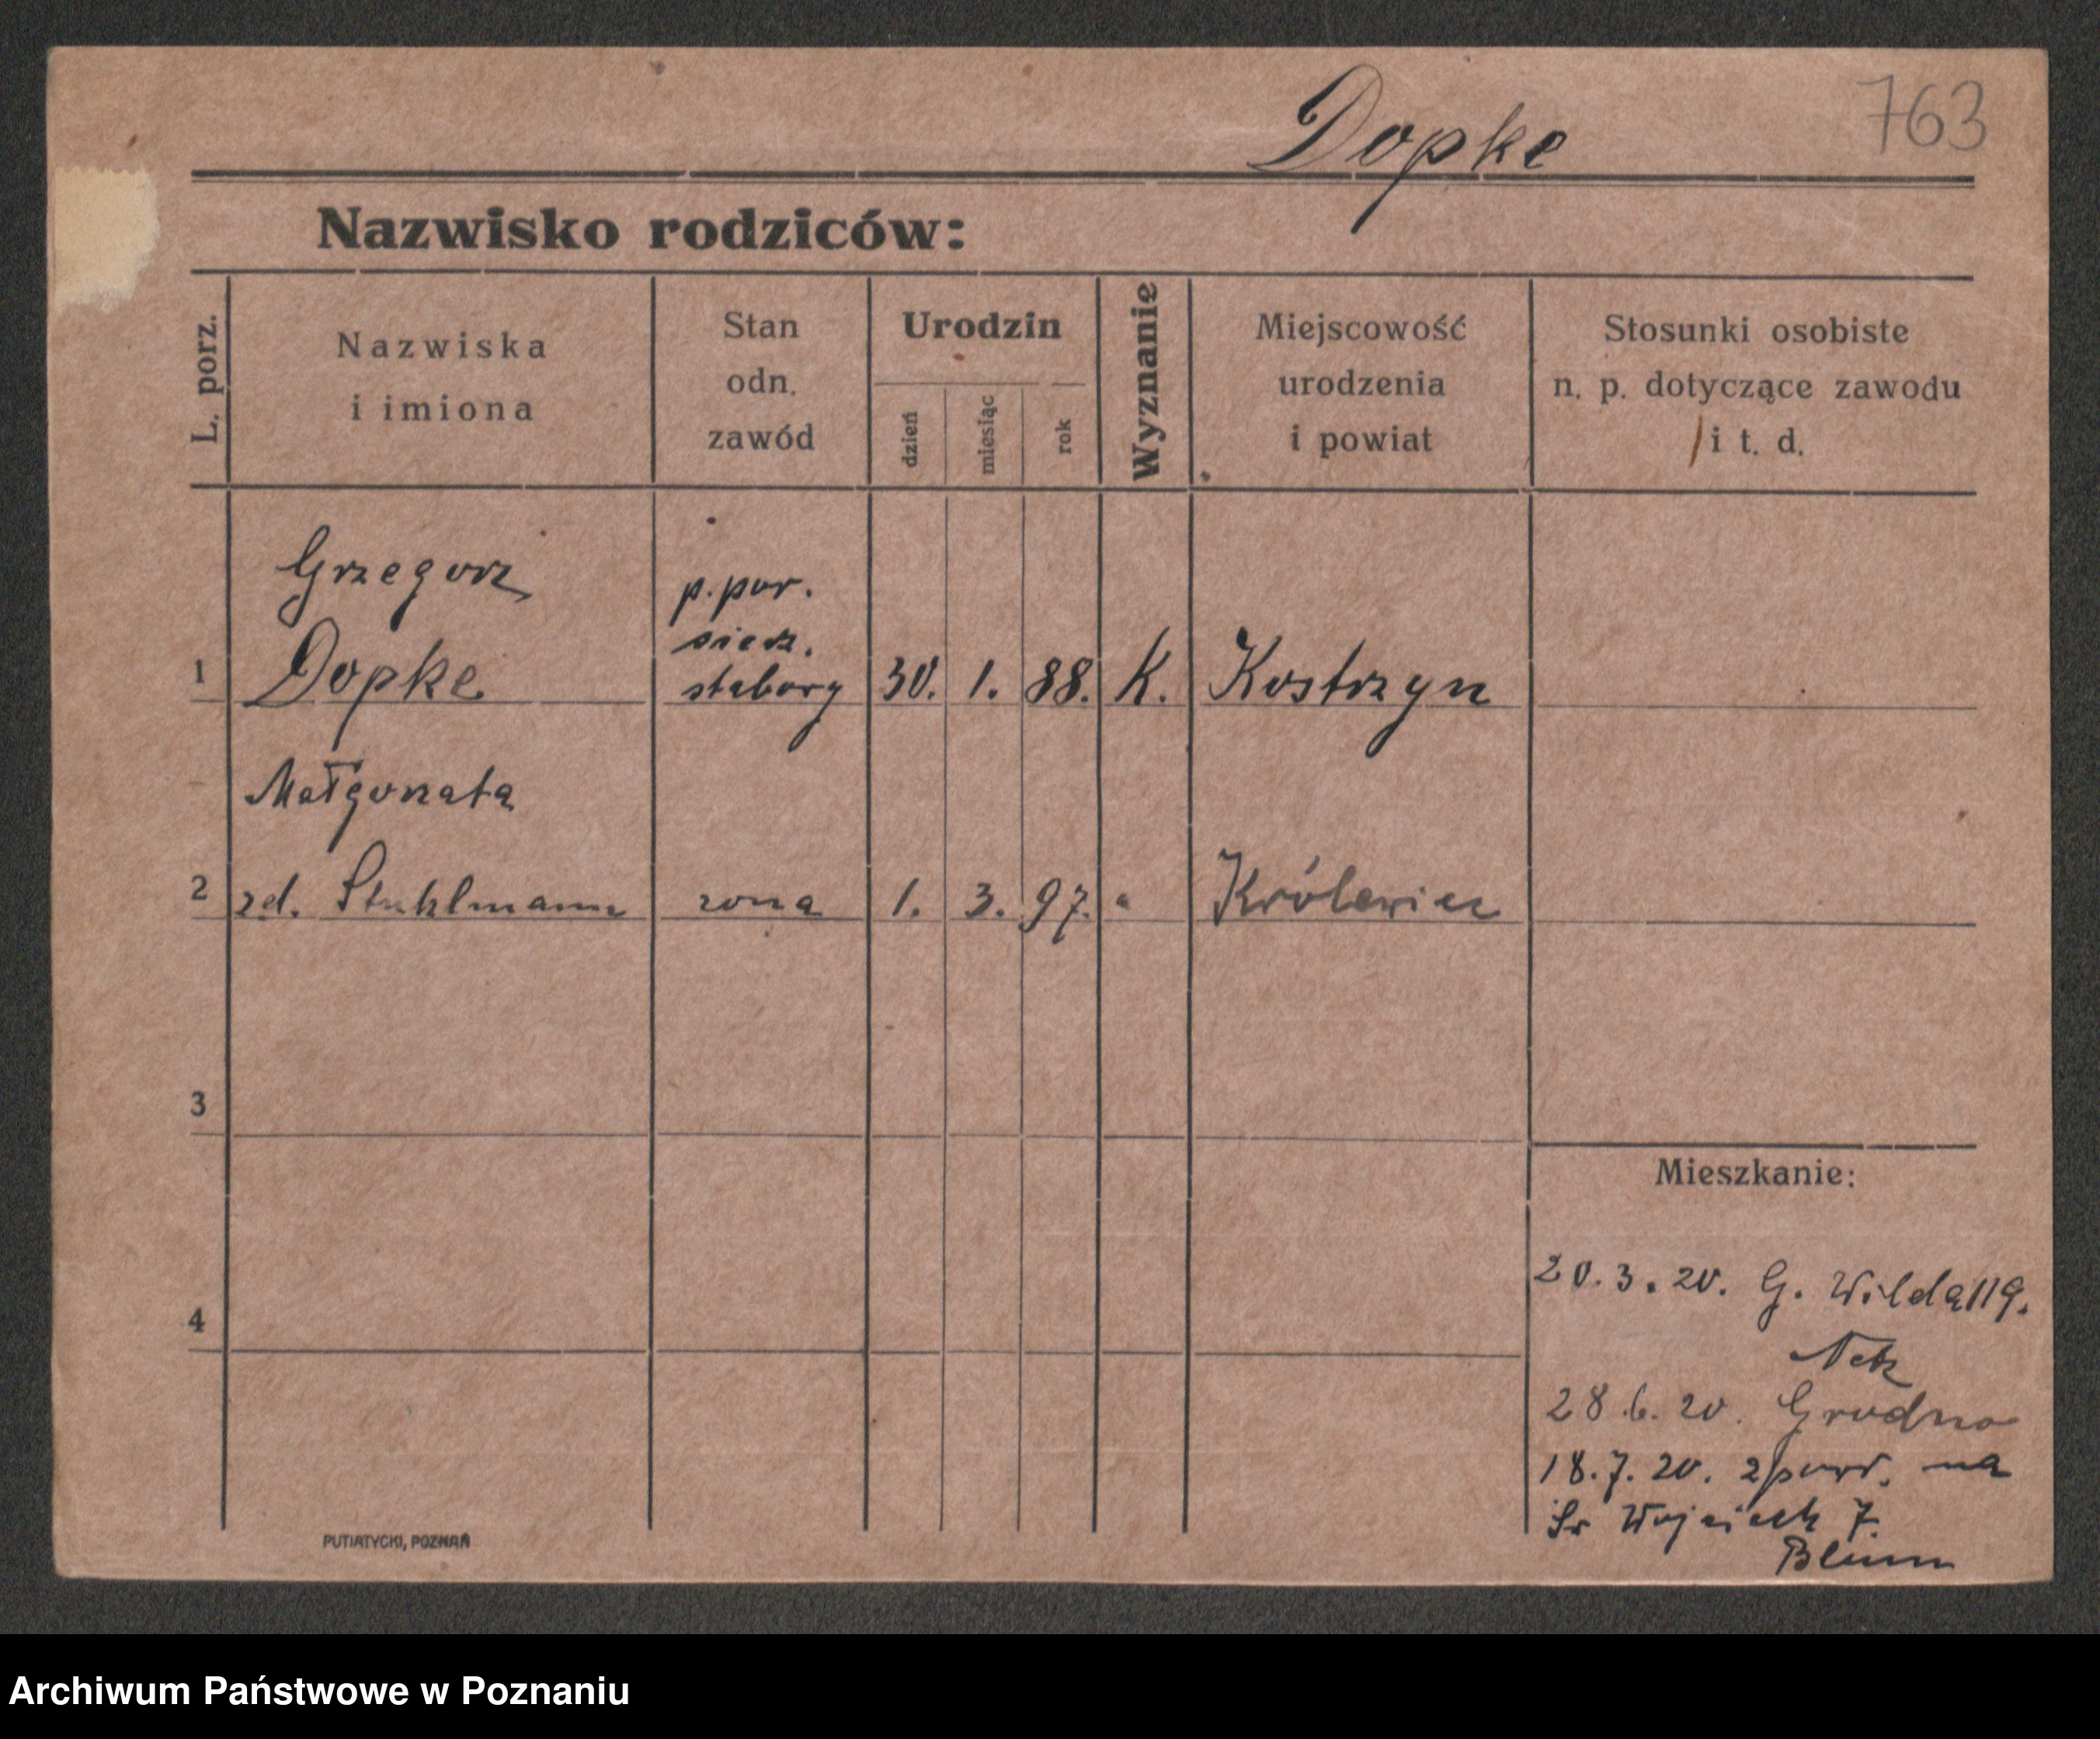 Dopke 763
Nazwisko rodziców:
L. porz.
Nazwiska
i imiona
Stan
odn.
zawód
Urodzin
dzień
miesiąc
rok
Wyznanie
Miejscowość
urodzenia
i powiat
Stosunki osobiste
n. p. dotyczące zawodu
i t. d.
Grzegorz
p. por.
1 Dopke 30. 1. 88. K. Kostrzyn
Małgorzata
2 zd. Stuhlmann zona 1. 3. 97. " Królewiec
3
Mieszkanie:
20.3.20. G. Wilda 119.
4
28.6.20. Grodno
18.7.20. na
Św Wojciech 7.
Blum
PUTIATYCKI, POZNAŃ
Archiwum Państwowe w Poznaniu